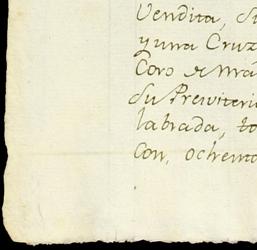 Vendita, su
y una Cruz
Coro de nrã
su Prewiteri
labrada, to
Con, ochento